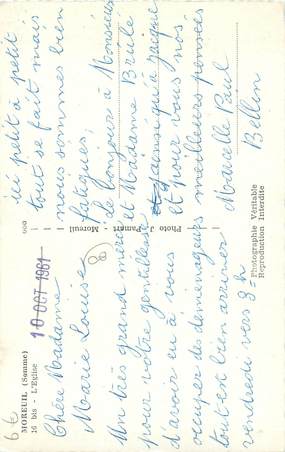 MOREUIL (Somme)
16 bis - L'Eglise
10 OCT 1961
Chère Madame
Marie Louise
Un très grand merci
pour votre gentillesse
d'avoir eu à vous
occuper des déménageurs
tout est bien arrivé
vendredi vers 8 h
ici petit à petit
tout se fait mais
nous sommes bien
fatigués,
le bonjour à Monsieur
et Madame Brulé
ainsi qu'à Jacques
et pour vous nos
meilleures pensées
Marcelle Paul
Bellin
Photo J. Pamart - Moreuil
Photographie Véritable
Reproduction Interdite
6 €